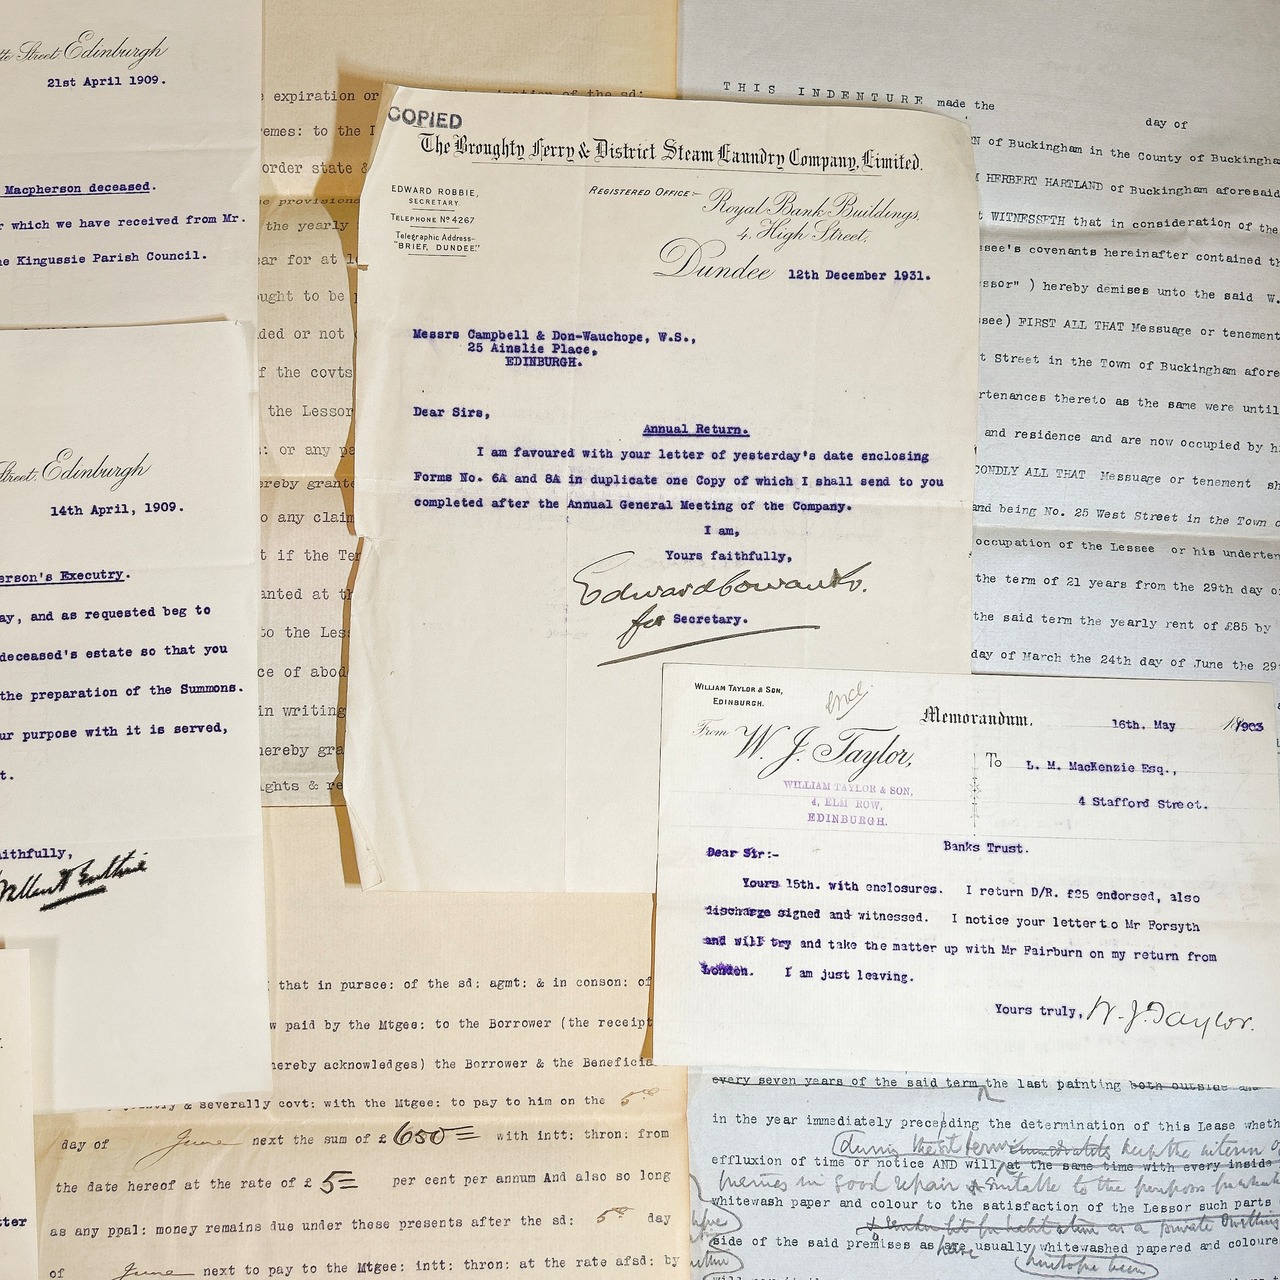 Street Edinburgh
21st April 1909.
Macpherson deceased.
which we have received from Mr.
Kingussie Parish Council.
Street. Edinburgh
14th April, 1909.
erson's Executry.
ay, and as requested beg to
deceased's estate so that you
the preparation of the Summons.
ur purpose with it is served,
t.
aithfully,
expiration or
of the sd:
remes: to the
order state &
provisions
the yearly
ear for at
ought to be
ded or not
f the covts
the Lessor
: or any pa
ereby grante
o any claim
t if the Te
anted at th
to the Les
ce of abod
in writing
hereby gra
ghts & re
COPIED
The Broughty Ferry & District Steam Laundry Company, Limited.
EDWARD ROBBIE,
SECRETARY.
TELEPHONE No 4267
Telegraphic Address-
"BRIEF, DUNDEE."
REGISTERED OFFICE:-
Royal Bank Buildings,
4, High Street,
Dundee 12th December 1931.
Messrs Campbell & Don-Wauchope, W.S.,
25 Ainslie Place,
EDINBURGH.
Dear Sirs,
Annual Return.
I am favoured with your letter of yesterday's date enclosing
Forms No. 6A and 8A in duplicate one Copy of which I shall send to you
completed after the Annual General Meeting of the Company.
I am,
Yours faithfully,
for Secretary.
THIS INDENTURE made the
day of
N of Buckingham in the County of Buckingha
HERBERT HARTLAND of Buckingham aforesaid
WITNESSETH that in consideration of the
see's covenants hereinafter contained th
ssor" ) hereby demises unto the said W.
see) FIRST ALL THAT Messuage or tenement
t Street in the Town of Buckingham afore
rtenances thereto as the same were until
and residence and are now occupied by h
CONDLY ALL THAT Messuage or tenement sh
and being No. 25 West Street in the Town o
occupation of the Lessee or his underten
the term of 21 years from the 29th day o
the said term the yearly rent of £85 by
day of March the 24th day of June the 29
WILLIAM TAYLOR & SON,
EDINBURGH.
encl
Memorandum.
16th. May 1903
From W. J. Taylor,
WILLIAM TAYLOR & SON,
4, ELM ROW,
EDINBURGH.
To L. M. MacKenzie Esq.,
4 Stafford Street.
Banks Trust.
Dear Sir:-
Yours 15th. with enclosures. I return D/R. £25 endorsed, also
discharge signed and witnessed. I notice your letter to Mr Forsyth
and will try and take the matter up with Mr Fairburn on my return from
London. I am just leaving.
Yours truly, W. J. Taylor.
that in pursce: of the sd: agmt: & in conson: of
w paid by the Mtgee: to the Borrower (the receipt
hereby acknowledges) the Borrower & the Beneficia
& severally covt: with the Mtgee: to pay to him on the 5th
day of June next the sum of £650= with intt: thron: from
the date hereof at the rate of £ 5= per cent per annum And also so long
as any ppal: money remains due under these presents after the sd: 5th day
of June next to pay to the Mtgee: intt: thron: at the rate afsd: by
tter
every seven years of the said term the last painting both outside and
in the year immediately preceding the determination of this Lease wheth
during the st term immediately keep the interior of
effluxion of time or notice AND will at the same time with every inside
premises in good repair & suitable to the purpose for which
whitewash paper and colour to the satisfaction of the Lessor such parts
side of the said premises as are usually whitewashed papered and coloure
have
heretofore been